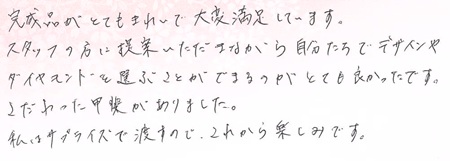 完成品がとてもきれいで大変満足しています。
スタッフの方に提案いただきながら自分たちでデザインや
ダイヤモンドを選ぶことができるのがとても良かったです。
こだわった甲斐がありました。
私はサプライズで渡すので、これから楽しみです。